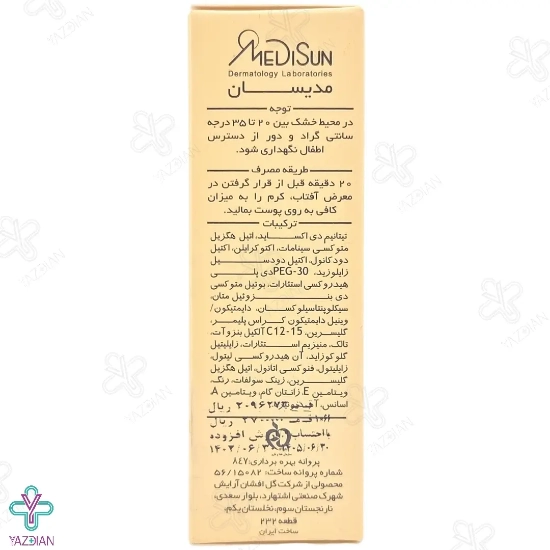 MEDISUN
Dermatology Laboratories
مدیسان
توجه
در محیط خشک بین ۲۰ تا ۳۵ درجه
سانتی گراد و دور از دسترس
اطفال نگهداری شود.
طریقه مصرف
۲۰ دقیقه قبل از قرار گرفتن در
معرض آفتاب، کرم را به میزان
کافی به روی پوست بمالید.
ترکیبات
تیتانیم دی اکساید، اتیل هگزیل
متوکسی سینامات، اکتوکرایلن، اکتیل
دودکانول، اکتیل دودسیل
زایلوزید، PEG-30 دی پلی
هیدروکسی استئارات، بوتیل متوکسی
دی بنزوئیل متان،
سیکلوپنتاسیلوکسان، دایمتیکون/
وینیل دایمتیکون کراس پلیمر،
گلیسرین، C12-15 آلکیل بنزوآت،
تالک، منیزیم استئارات، زایلیتیل
گلوکوزاید، آن هیدروکسی لیتول،
زایلیتول، فنوکسی اتانول، اتیل هگزیل
گلیسرین، زینک سولفات، رنگ،
ویتامین E، زانتان گام، ویتامین A،
اسانس، ۲۰۹۶۲۷۳ ریال
۲۷۰۰۰۰۰ ریال
بااحتساب ارزش افزوده
۱۴۰۲/۰۶/۳۰ ۱۴۰۵/۰۶/۳۰
پروانه بهره برداری: ۸۴۷
شماره پروانه ساخت: ۵۶/۱۵۰۸۲
محصولی از شرکت گل افشان آرایش
شهرک صنعتی اشتهارد، بلوار سعدی،
نارنجستان سوم، نخلستان یکم،
قطعه ۲۳۲
ساخت ایران
YAZDIAN